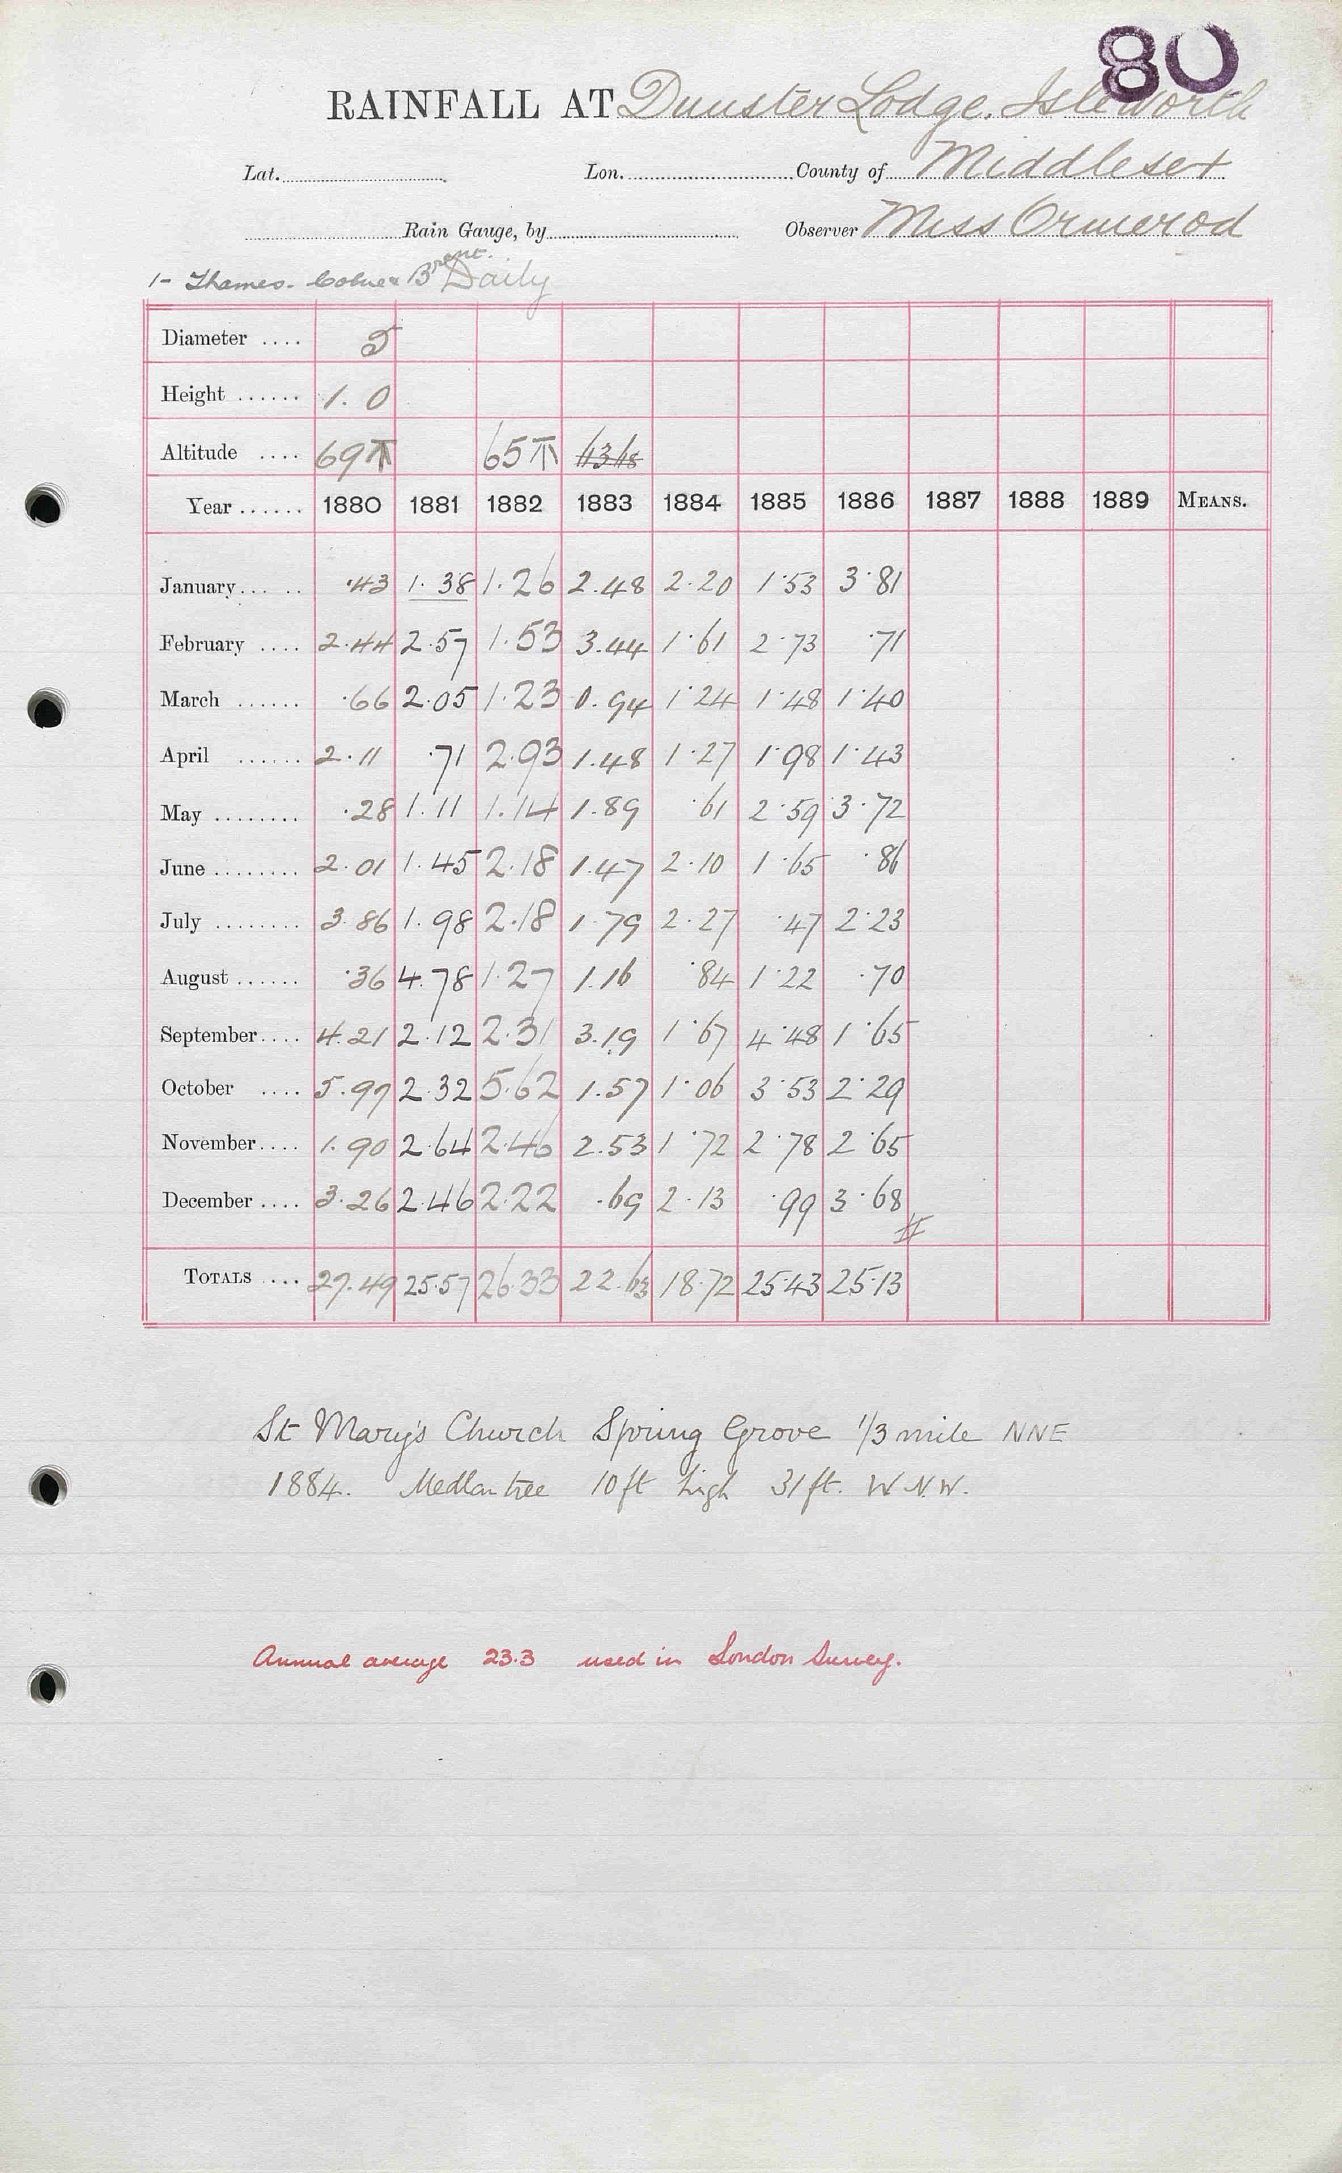 80
RAINFALL AT Dunster Lodge. Isleworth
Lat. Lon. County of Middlesex
Rain Gauge, by Observer Miss Ormerod
1- Thames. Colne & Brent. Daily
Diameter .... 5
Height ...... 1. 0
Altitude .... 69 65
Year ...... 1880 1881 1882 1883 1884 1885 1886 1887 1888 1889 MEANS.
January ... .. ·43 1.38 1.26 2.48 2.20 1·53 3·81
February .... 2.44 2.57 1.53 3.44 1·61 2·73 ·71
March ...... ·66 2.05 1.23 0.94 1·24 1·48 1·40
April ...... 2.11 ·71 2.93 1.48 1·27 1·98 1·43
May ........ ·28 1.11 1.14 1.89 ·61 2·59 3·72
June ........ 2.01 1.45 2.18 1.47 2·10 1·65 ·86
July ........ 3.86 1.98 2.18 1.79 2·27 ·47 2·23
August ...... ·36 4.78 1.27 1.16 ·84 1·22 ·70
September .... 4.21 2.12 2.31 3.19 1·67 4·48 1·65
October .... 5.97 2.32 5.62 1.57 1·06 3·53 2·29
November .... 1.90 2.64 2.46 2.53 1·72 2·78 2·65
December .... 3.26 2.46 2.22 .69 2·13 ·99 3·68
TOTALS .... 27.49 25.57 26.33 22.63 18.72 25.43 25.13
St Mary's Church Spring Grove 1/3 mile NNE
1884. Medlar tree 10 ft high 31 ft. W.N.W.
Annual average 23.3 used in London Survey.